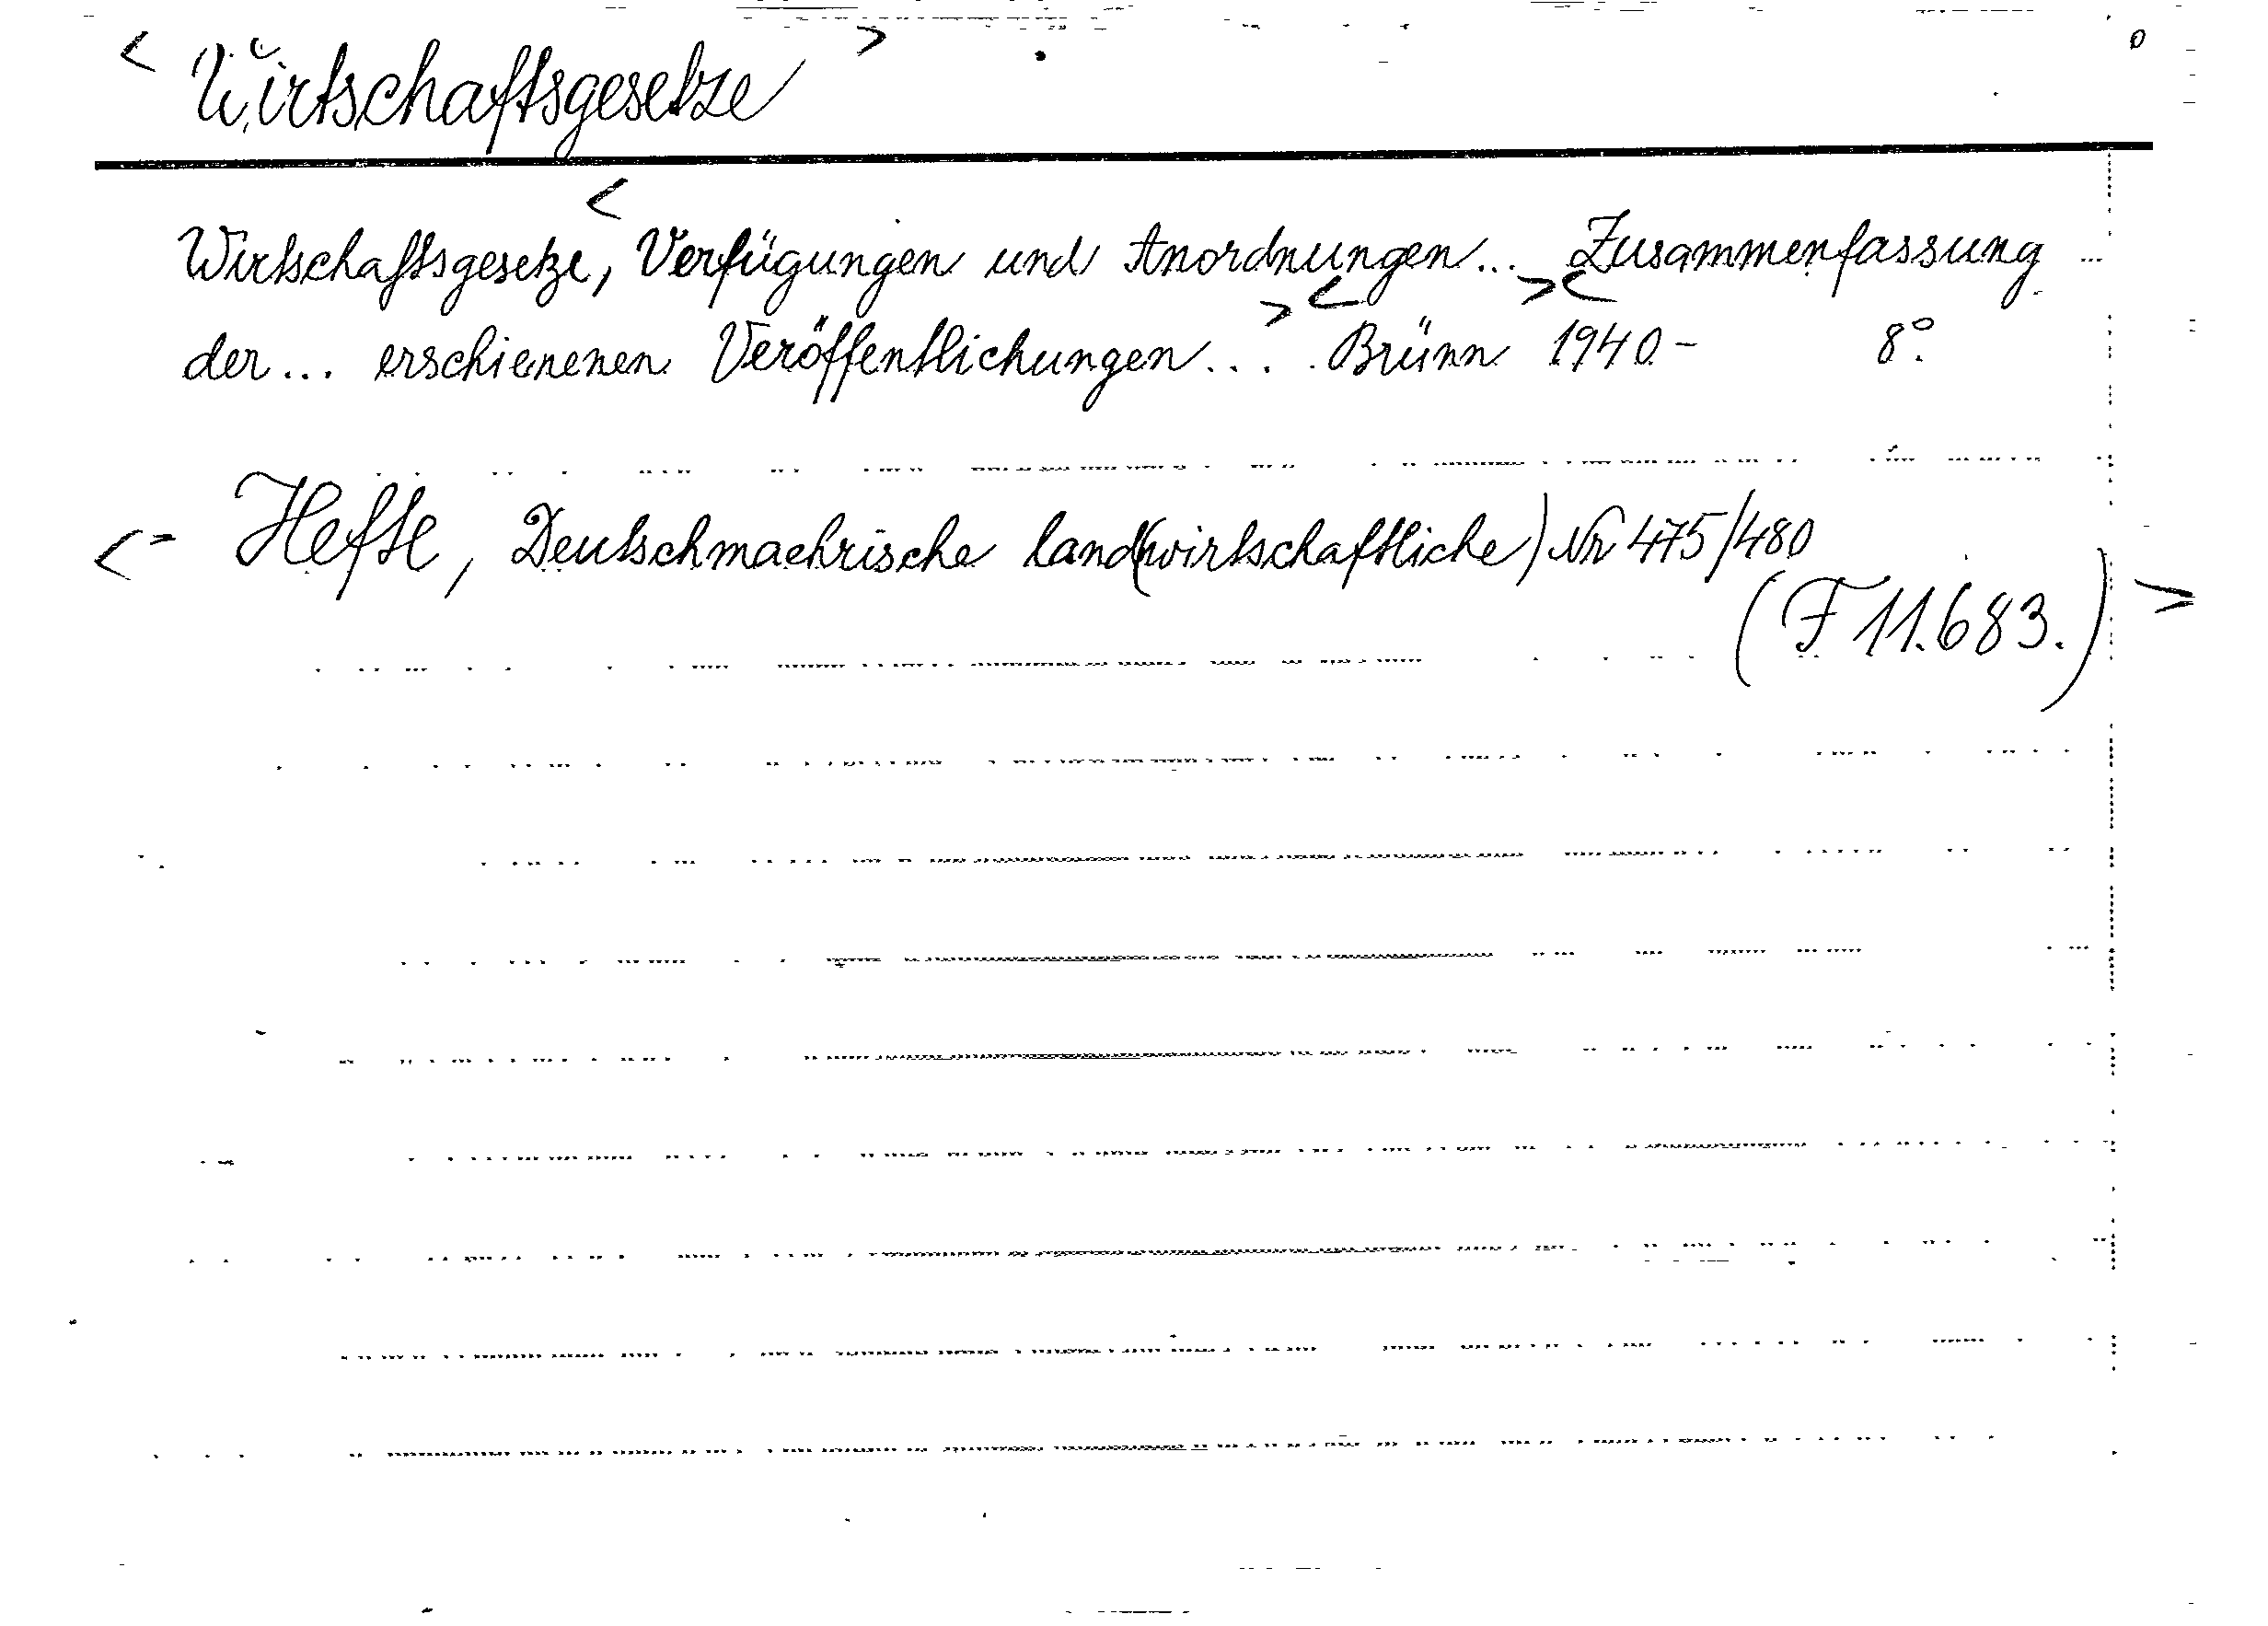 < Wirtschaftsgesetze >
Wirtschaftsgesetze, < Verfügungen und Anordnungen... > < Zusammenfassung ...
der... erschienenen Veröffentlichungen... > < Brünn 1940- 8°.
< - Hefte, Deutschmaehrische land(wirtschaftliche) Nr 475/480
(F 11.683.) >